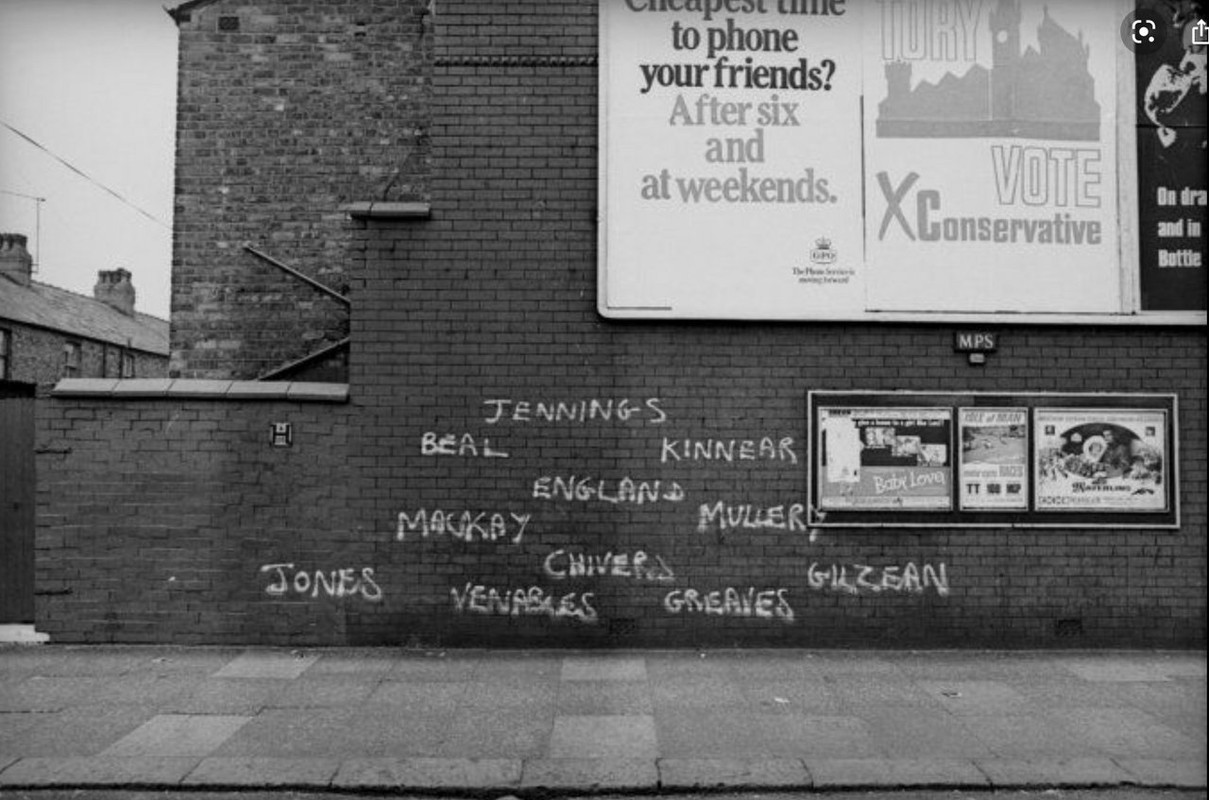 Cheapest time
to phone
your friends?
After six
and
at weekends.
GPO
The Phone Service is
moving forward
TORY
VOTE
X Conservative
On dra
and in
Bottle
MPS
JENNINGS
BEAL KINNEAR
ENGLAND
MACKAY MULLERY
CHIVERS
JONES GILZEAN
VENABLES GREAVES
Baby Love
ISLE of MAN
RACES
TT
MAYERLING